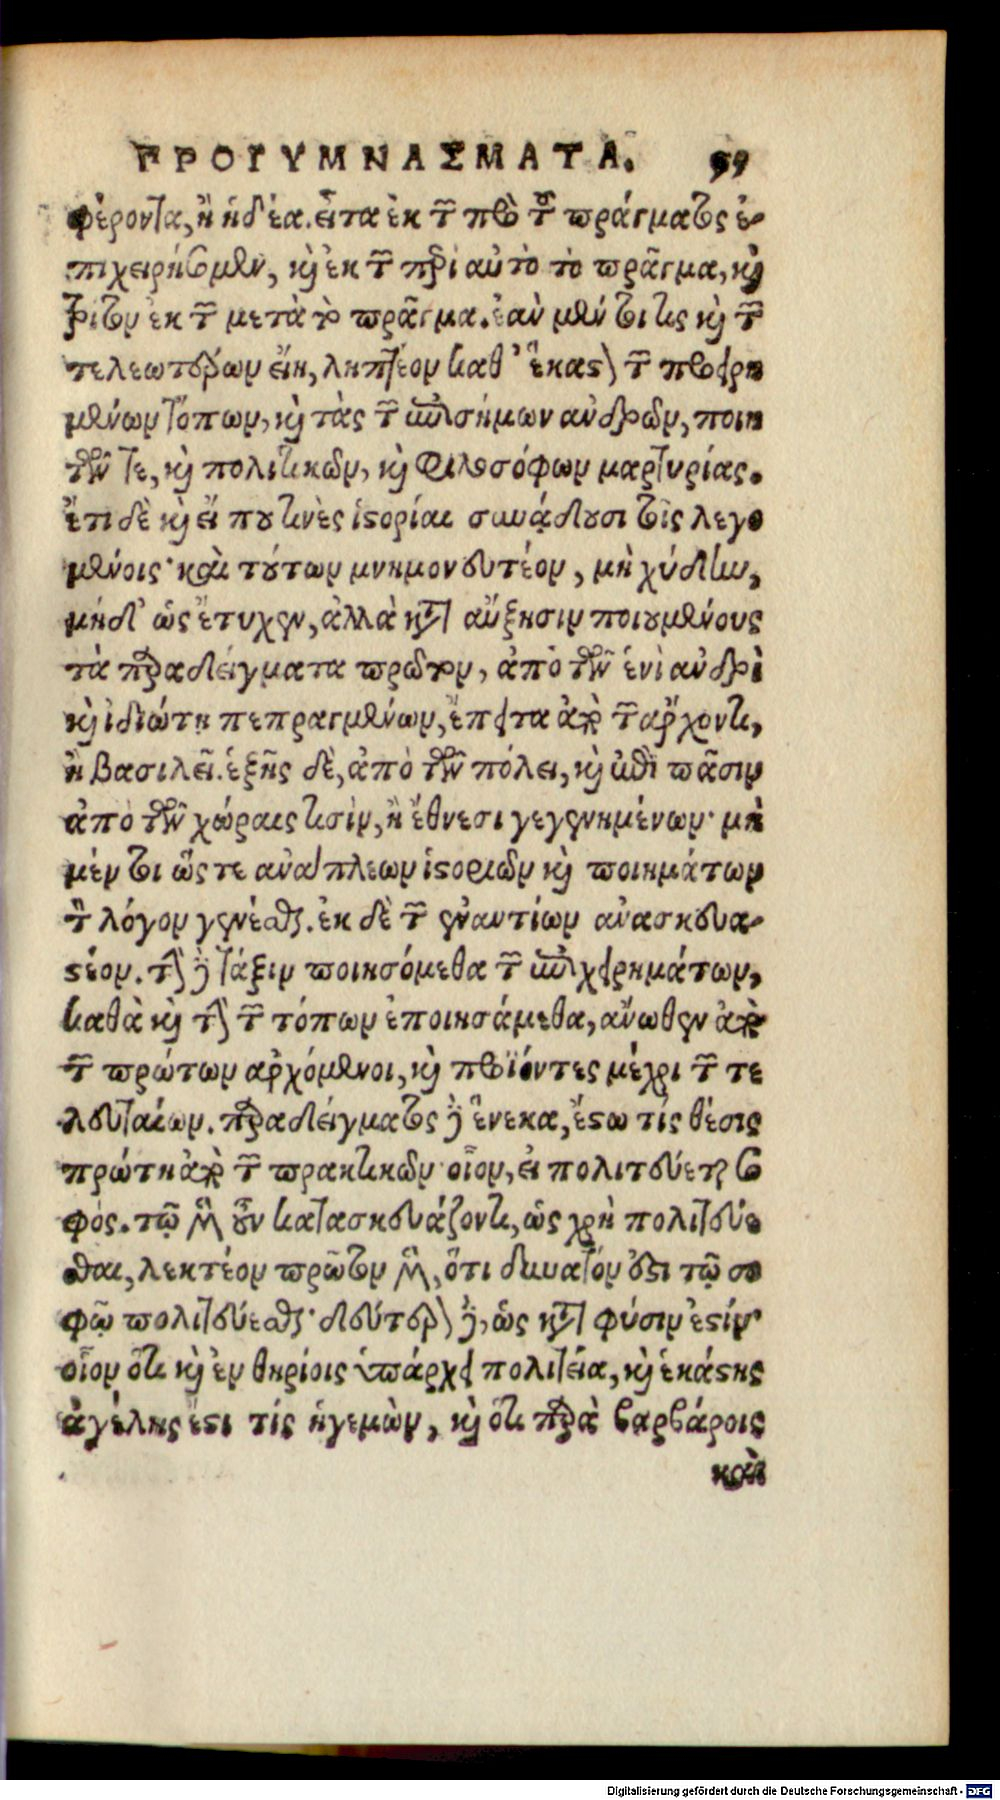 ΠΡΟΓΥΜΝΑΣΜΑΤΑ. 59
φέροντα, ἢ ἡδέα. εἶτα ἐκ τῶν πρὸ τοῦ πράγματος ἐ-
πιχειρήσομεν, καὶ ἐκ τῶν περὶ αὐτὸ τὸ πρᾶγμα, καὶ
τρίτον ἐκ τῶν μετὰ τὸ πρᾶγμα. ἐὰν μέν τοι τις καὶ τῶν
τελεωτέρων εἴη, ληπτέον καθ' ἕκαστον τῶν προειρη
μένων τόπων, καὶ τὰς τῶν ἐπισήμων ἀνδρῶν, ποιη
τῶν τε, καὶ πολιτικῶν, καὶ φιλοσόφων μαρτυρίας.
ἔτι δὲ καὶ εἴ που τινὲς ἱστορίαι συνᾴδουσι τοῖς λεγο
μένοις· καὶ τούτων μνημονευτέον, μὴ χύδην,
μήδ' ὡς ἔτυχεν, ἀλλὰ κατ' αὔξησιν ποιουμένους
τὰ παραδείγματα πρῶτον, ἀπὸ τῶν ἑνὶ ἀνδρὶ
καὶ ἰδιώτῃ πεπραγμένων, ἔπειτα ἀπὸ τῶν ἄρχοντι,
ἢ βασιλεῖ. ἑξῆς δὲ, ἀπὸ τῶν πόλει, καὶ ἐπὶ πᾶσιν
ἀπὸ τῶν χώραις τισὶν, ἢ ἔθνεσι γεγενημένων· μὴ
μέν τοι ὥς τε ἀνάπλεων ἱστοριῶν καὶ ποιημάτων
τὸν λόγον γενέσθαι. ἐκ δὲ τῶν ἐναντίων ἀνασκευα-
στέον. τὴν δὲ τάξιν ποιησόμεθα τῶν ἐπιχειρημάτων,
καθὰ καὶ τὴν τῶν τόπων ἐποιησάμεθα, ἄνωθεν ἀπὸ
τῶν πρώτων ἀρχόμενοι, καὶ προϊόντες μέχρι τῶν τε
λευταίων. παραδείγματος δὲ ἕνεκα, ἔστω τις θέσις
πρώτη ἀπὸ τῶν πρακτικῶν· οἷον, εἰ πολιτεύεται σο
φός. τῷ μὲν οὖν κατασκευάζοντι, ὡς χρὴ πολιτεύε
σθαι, λεκτέον πρῶτον μὲν, ὅτι δυνατόν ἐστι τῷ σο
φῷ πολιτεύεσθαι· δεύτερον δὲ, ὡς κατὰ φύσιν ἐστίν·
οἷον ὅτι καὶ ἐν θηρίοις ὑπάρχει πολιτεία, καὶ ἑκάστης
ἀγέλης ἔστι τις ἡγεμὼν, καὶ ὅτι παρὰ βαρβάροις
καὶ
Digitalisierung gefördert durch die Deutsche Forschungsgemeinschaft - DFG